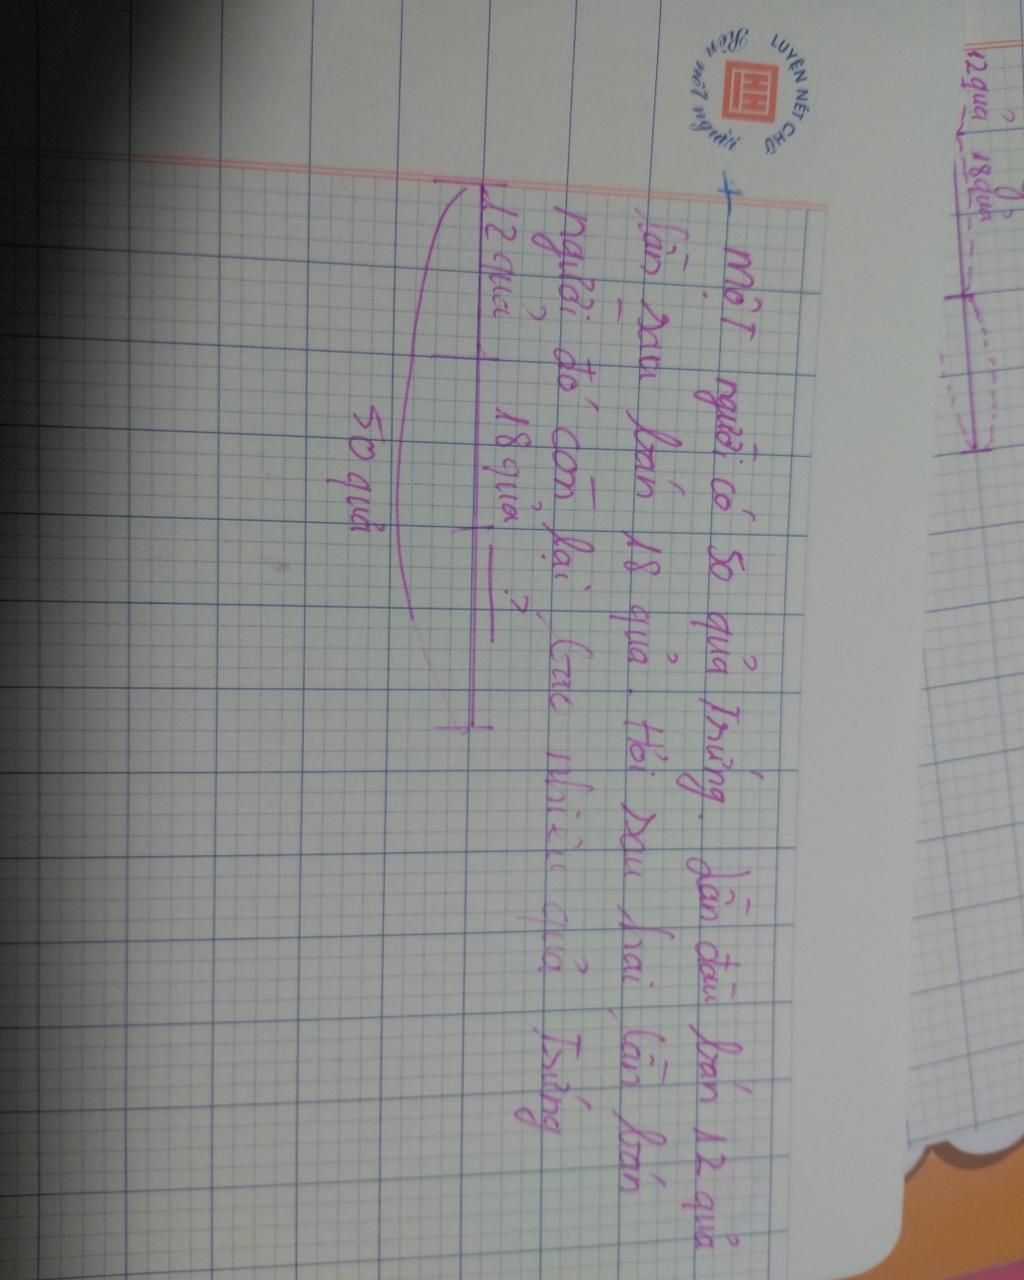 12 quả 18 quả
LUYỆN NÉT CHỮ
Rèn nết người
HH
+ Một người có 50 quả trứng. Lần đầu bán 12 quả
lần sau bán 18 quả. Hỏi sau hai lần bán
người đó còn lại bao nhiêu quả trứng
12 quả 18 quả ?
50 quả